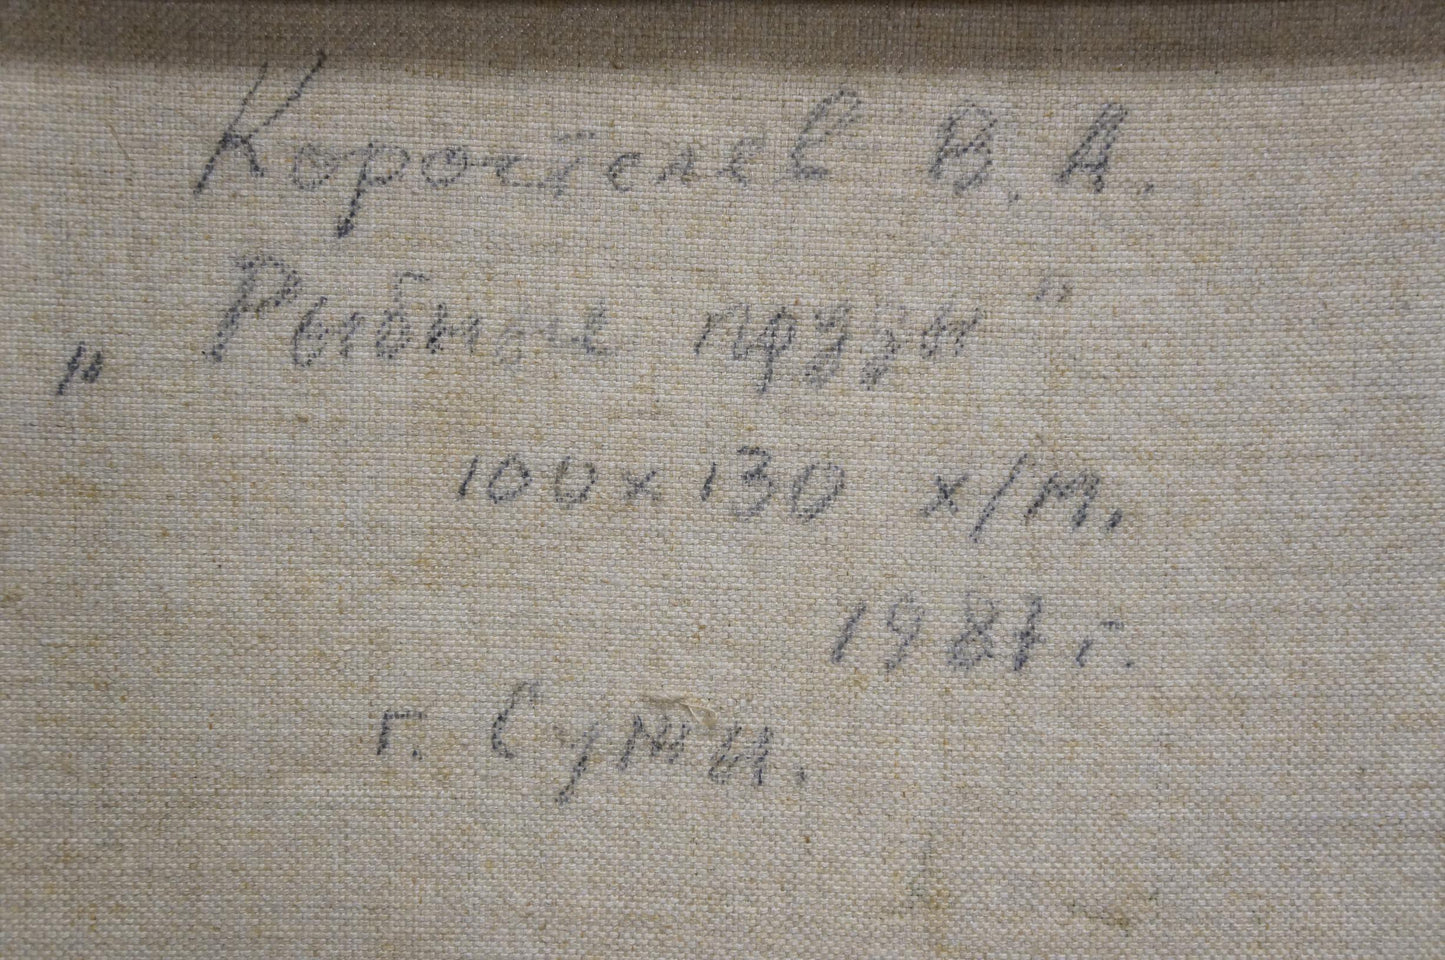 Коростелев В. А.
„Рыбные пруды"
100х130 х/м.
1987г.
г. Сумы.